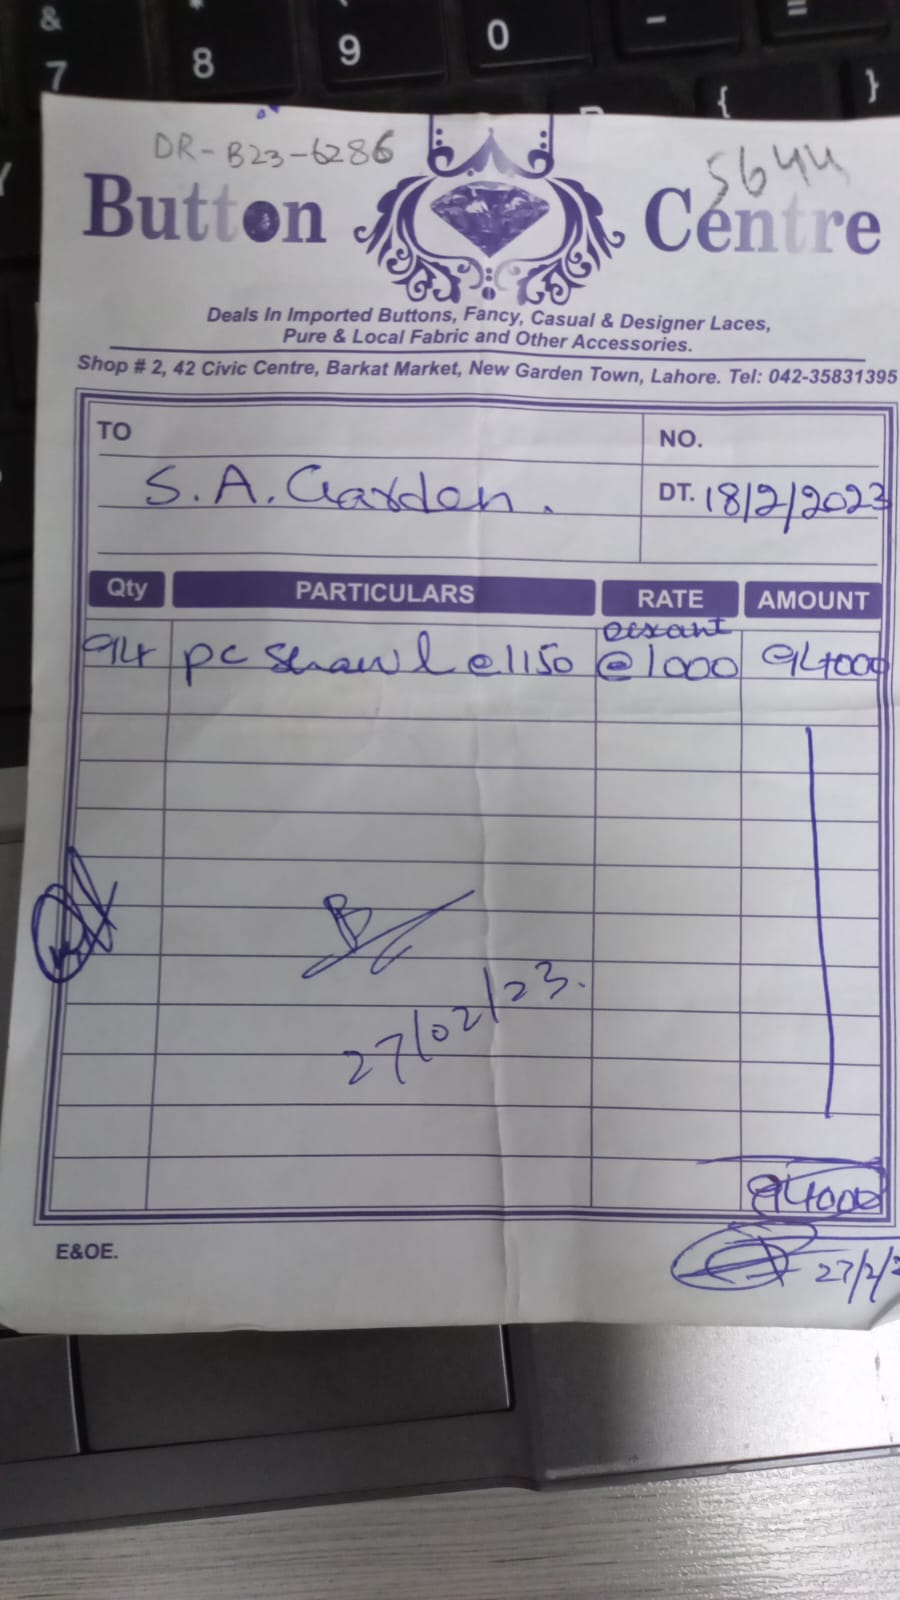 &
7
*
8
9
0
-
=
{
}
DR-B23-6286
5644
Button Centre
Deals In Imported Buttons, Fancy, Casual & Designer Laces,
Pure & Local Fabric and Other Accessories.
Shop # 2, 42 Civic Centre, Barkat Market, New Garden Town, Lahore. Tel: 042-35831395
TO
NO.
S.A. Garden.
DT. 18/2/2023
Qty PARTICULARS RATE AMOUNT
94 pc shawl @1150 @1000 94000
27/02/23.
94000
E&OE.
27/2/2